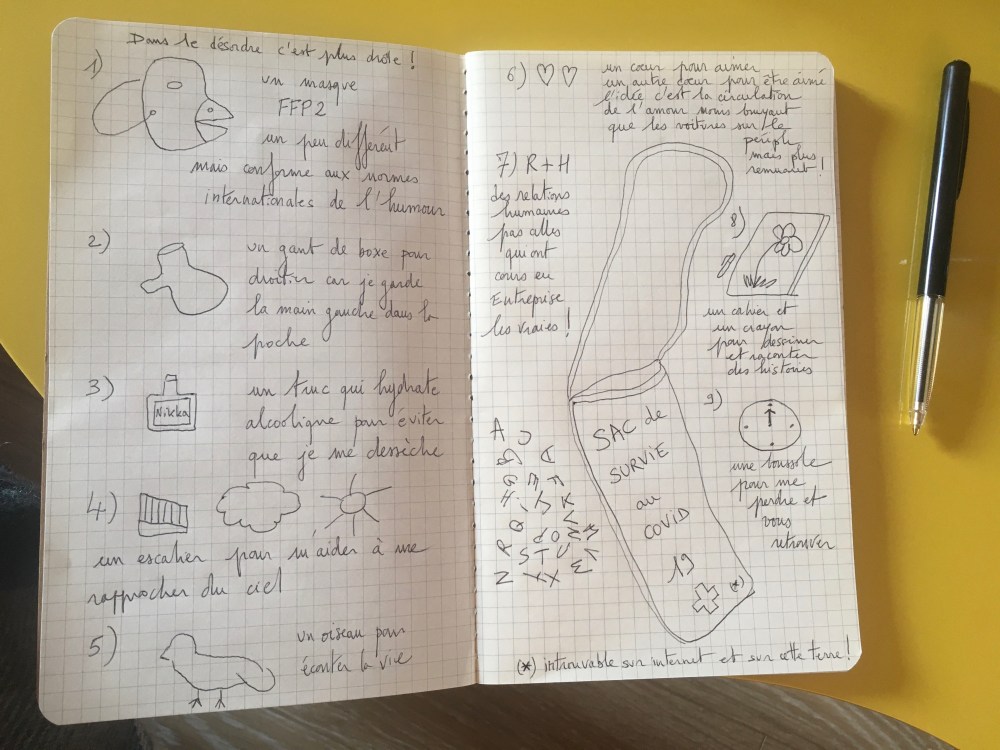 Dans le désordre c'est plus drôle !
1)
un masque
FFP2
un peu différent
mais conforme aux normes
internationales de l'humour
2)
un gant de boxe pour
droitier car je garde
la main gauche dans la
poche
3)
Nikka
un truc qui hydrate
alcoolique pour éviter
que je me dessèche
4)
un escalier pour m'aider à me
rapprocher du ciel
5)
un oiseau pour
écouter la vie
6)
un cœur pour aimer
un autre cœur pour être aimé
l'idée c'est la circulation
de l'amour moins bruyant
que les voitures sur le
périph,
mais plus
remuant !
7) R + H
des relations
humaines
pas celles
qui ont
cours en
Entreprise
les vraies !
8)
un cahier et
un crayon
pour dessiner
et raconter
des histoires
9)
une boussole
pour me
perdre et
vous
retrouver
SAC de
SURVIE
au
COVID
19
(*)
(*) introuvable sur internet et sur cette terre !